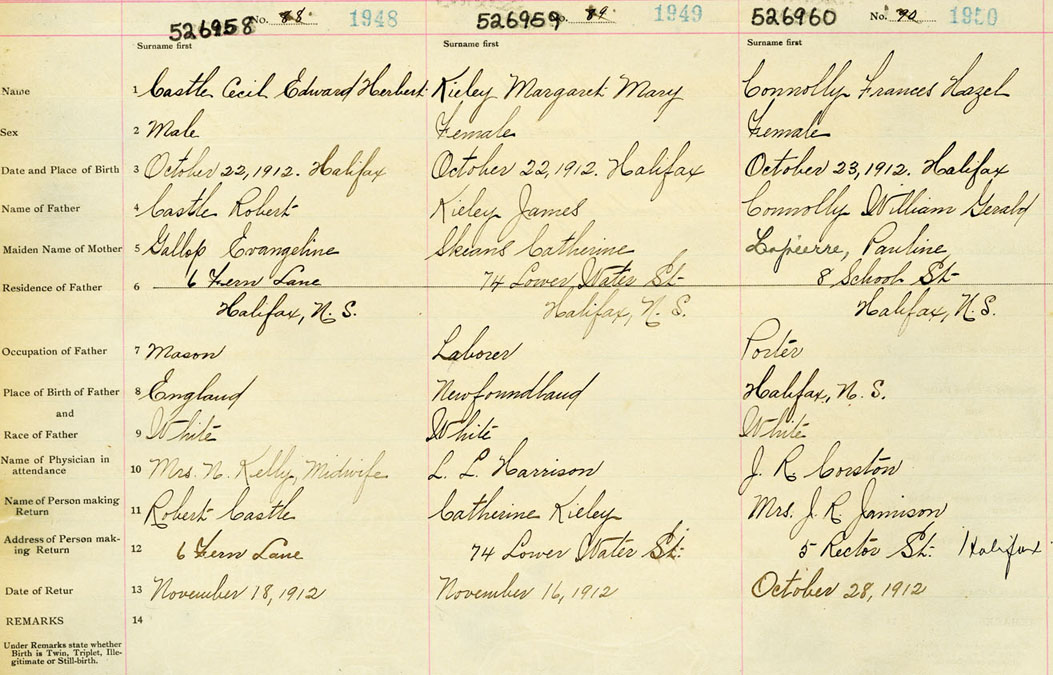 526958 No. 88 1948 526959 No. 89 1949 526960 No. 90 1950
Surname first Surname first Surname first
Name 1 Castle Cecil Edward Herbert Kieley Margaret Mary Connolly Frances Hazel
Sex 2 Male Female Female
Date and Place of Birth 3 October 22, 1912. Halifax October 22, 1912. Halifax October 23, 1912. Halifax
Name of Father 4 Castle Robert Kieley James Connolly William Gerald
Maiden Name of Mother 5 Gallop Evangeline Skeans Catherine Lapierre, Pauline
6 Fern Lane 74 Lower Water St. 8 School St.
Residence of Father 6
Halifax, N.S. Halifax, N.S. Halifax, N.S.
Occupation of Father 7 Mason Laborer Porter
Place of Birth of Father 8 England Newfoundland Halifax, N.S.
and
Race of Father 9 White White White
Name of Physician in
attendance 10 Mrs. N. Kelly, Midwife L. L. Harrison J. R. Corston
Name of Person making
Return 11 Robert Castle Catherine Kieley Mrs. J. R. Jamison
Address of Person mak-
ing Return 12 6 Fern Lane 74 Lower Water St. 5 Rector St. Halifax
Date of Retur 13 November 18, 1912 November 16, 1912 October 28, 1912
REMARKS 14
Under Remarks state whether
Birth is Twin, Triplet, Ille-
gitimate or Still-birth.